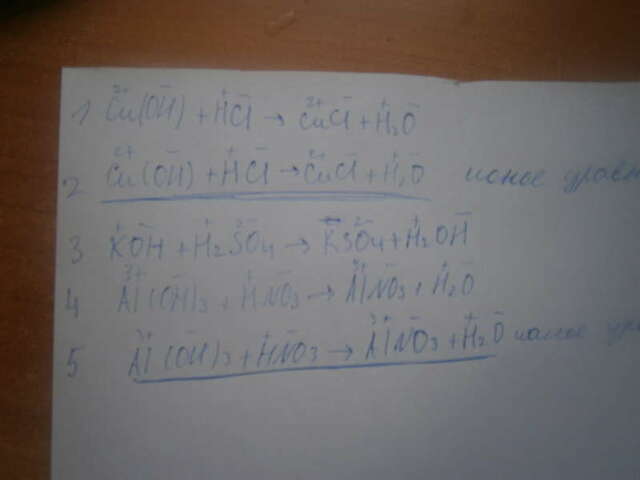 1 Cu²⁺(OH⁻) + H⁺Cl⁻ → Cu²⁺Cl⁻ + H₂⁺O⁻
2 Cu²⁺(OH⁻) + H⁺Cl⁻ → Cu²⁺Cl⁻ + H₂⁺O⁻ ионое уравн
3 K⁺OH⁻ + H₂⁺SO₄²⁻ → K⁺SO₄²⁻ + H₂⁺OH⁻
4 Al³⁺(OH⁻)₃ + H⁺NO₃⁻ → Al³⁺NO₃⁻ + H₂⁺O⁻
5 Al³⁺(OH⁻)₃ + H⁺NO₃⁻ → Al³⁺NO₃⁻ + H₂⁺O⁻ ионое ура